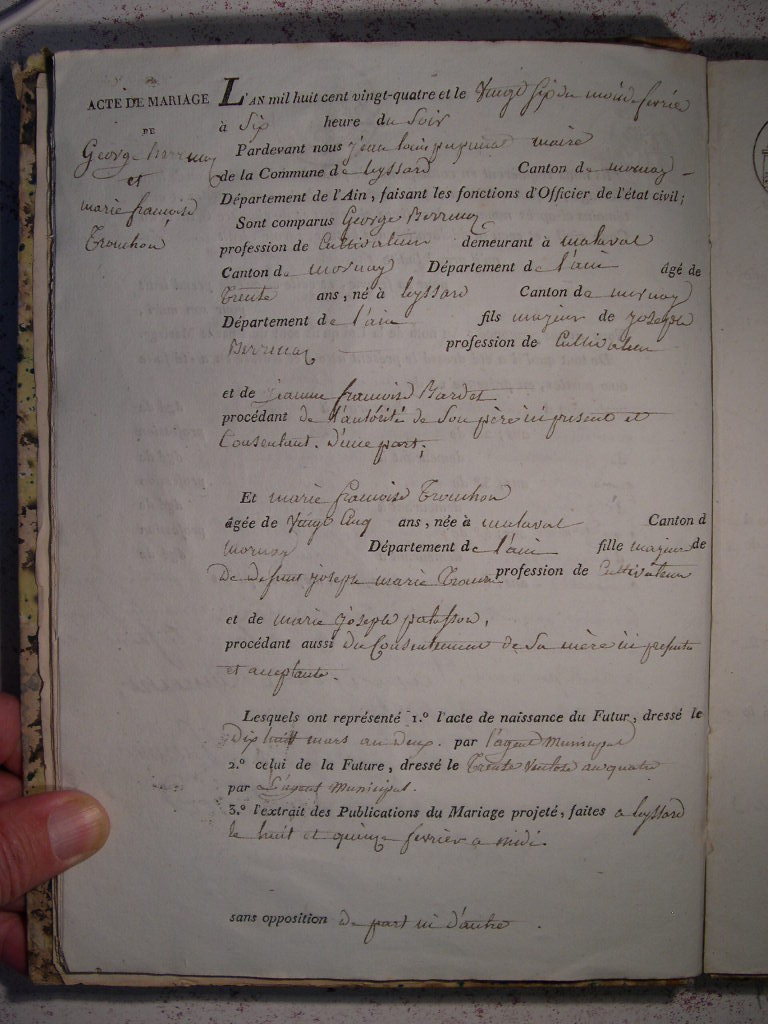 ACTE DE MARIAGE
DE
George
et
marie françoise
Trouchon
L'AN mil huit cent vingt-quatre et le Vingt six du mois de fevrie
à Six heure du Soir
Pardevant nous jean louis maire
de la Commune de leyssard Canton de mornay
Département de l'Ain, faisant les fonctions d'Officier de l'état civil;
Sont comparus George
profession de Cultivateur demeurant à malaval
Canton de mornay Département de l'ain âgé de
Trente ans, né à leyssard Canton de mornay
Département de l'ain fils majeur de joseph
profession de Cultivateur
et de jeanne françoise Bardet
procédant de l'autórité de Son père ici present et
Consentant. d'une part;
Et marie françoise Trouchon
âgée de Vingt Cinq ans, née à malaval Canton d
mornay Département de l'ain fille majeur de
De defunt joseph marie profession de Cultivateur
et de marie joseph
procédant aussi du Consentement de Sa mère ici presente
et aceptante.
Lesquels ont représenté 1.º l'acte de naissance du Futur, dressé le
Dix huit mars an deux. par l'agent Municipal
2.º celui de la Future, dressé le Trente Ventose an quatre
par L'agent Municipal.
3.º l'extrait des Publications du Mariage projeté, faites a leyssard
le huit et quinze fevrier a midi.
sans opposition de part ni d'autre.